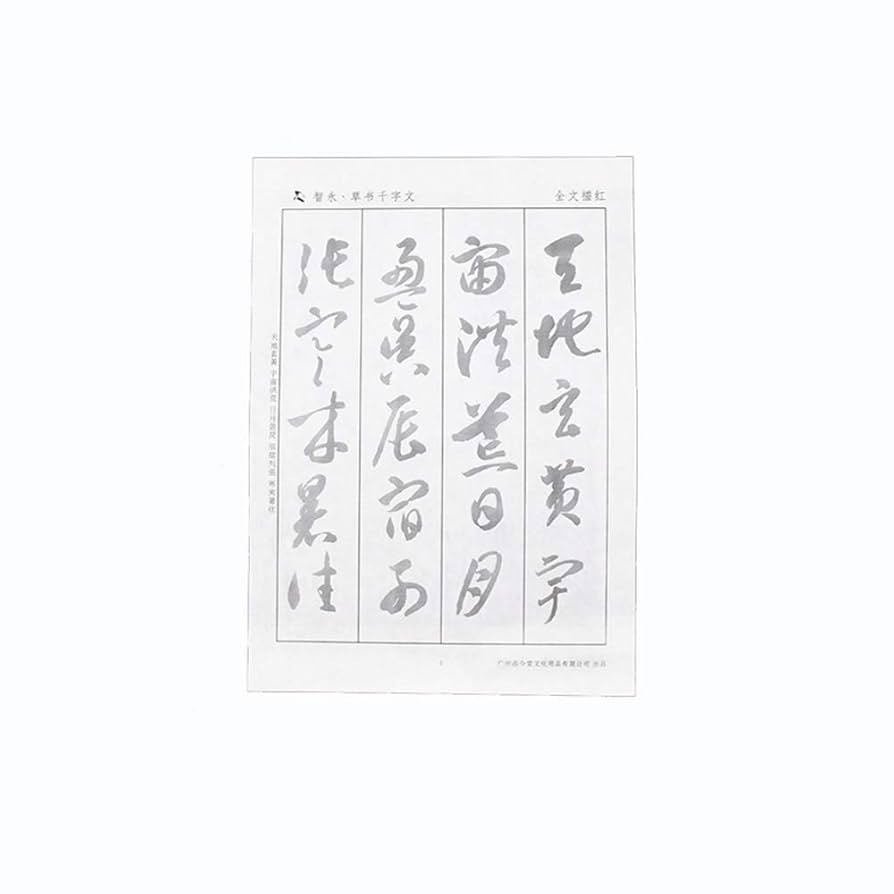 智永·草书千字文
全文描红
天地玄黄宇
宙洪荒日月
盈昃辰宿列
张寒来暑往
天地玄黄 宇宙洪荒 日月盈昃 辰宿列张 寒来暑往
1
文化用品有限公司 出品